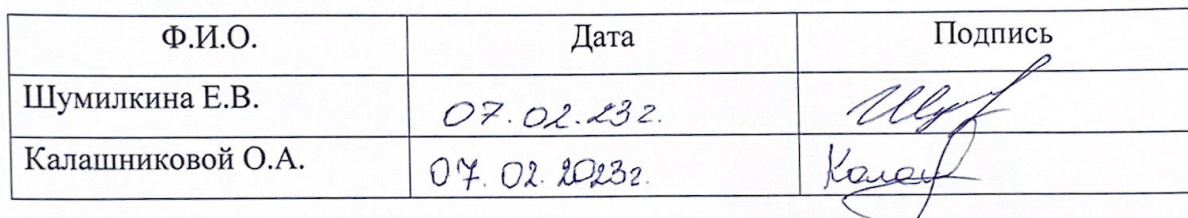 Ф.И.О. Дата Подпись
Шумилкина Е.В. 07.02.23г.
Калашниковой О.А. 07.02.2023г.